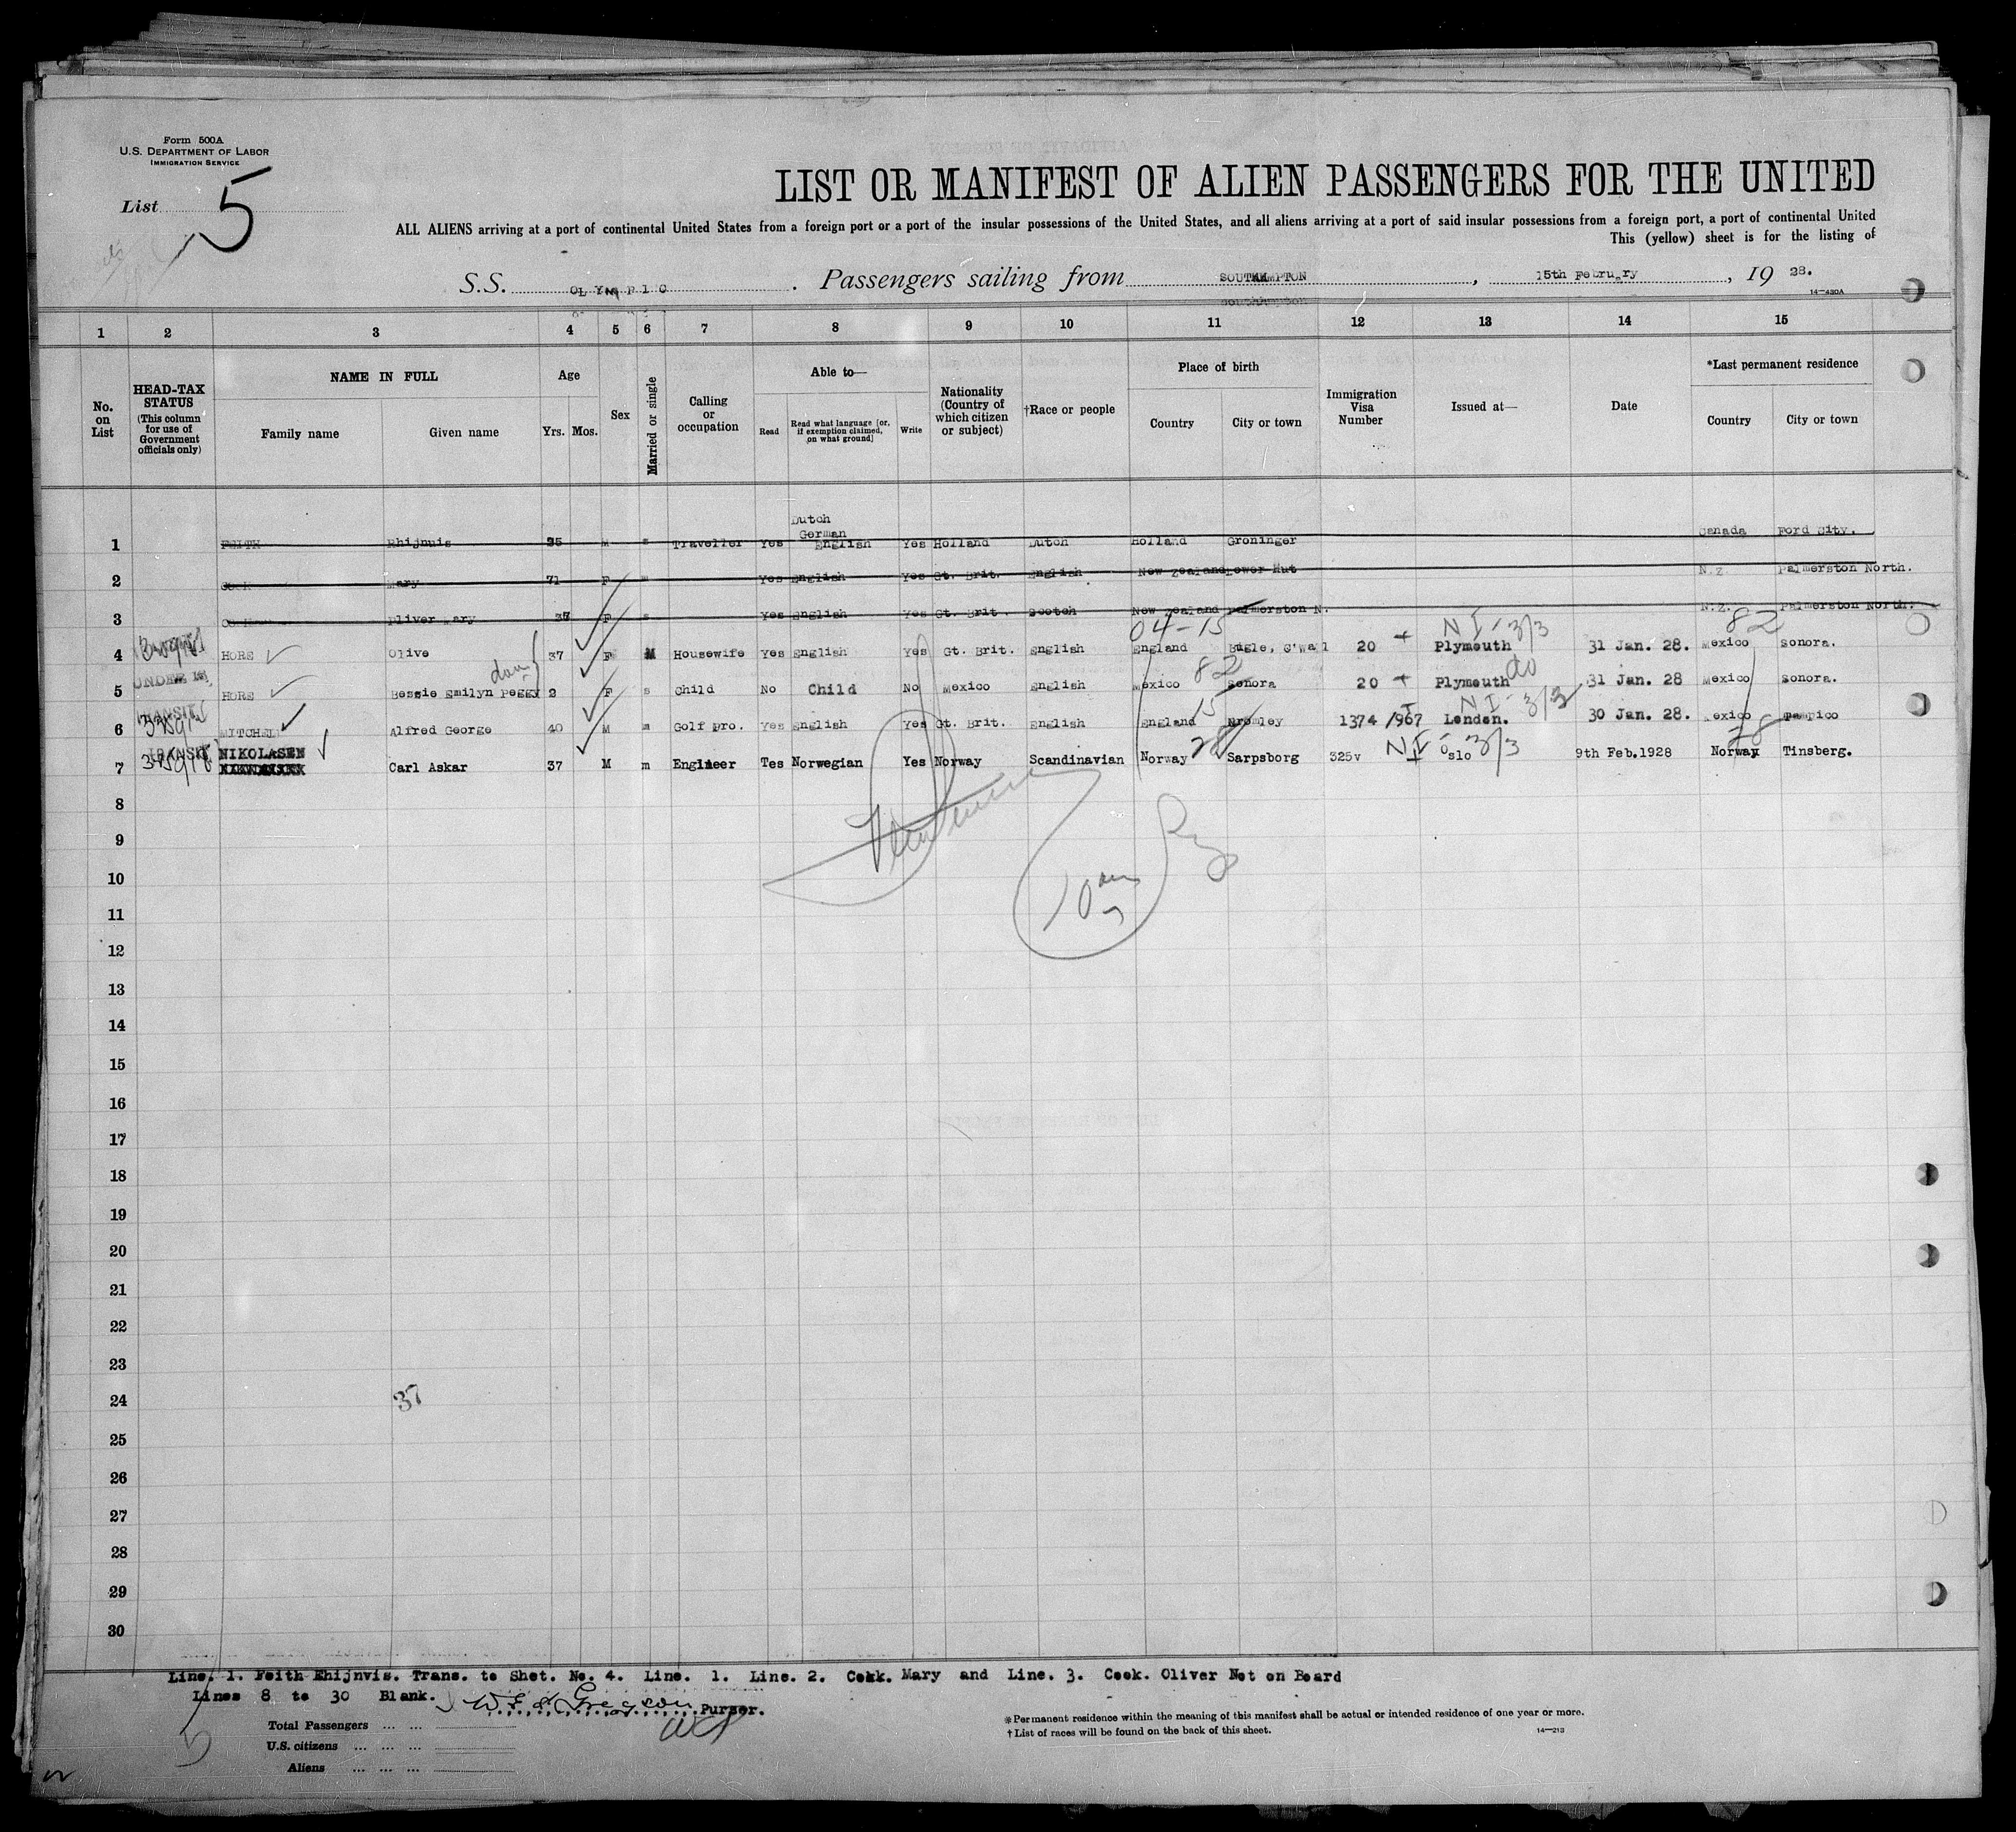 Form 500A
U.S. DEPARTMENT OF LABOR
IMMIGRATION SERVICE
List 5
LIST OR MANIFEST OF ALIEN PASSENGERS FOR THE UNITED
ALL ALIENS arriving at a port of continental United States from a foreign port or a port of the insular possessions of the United States, and all aliens arriving at a port of said insular possessions from a foreign port, a port of continental United
This (yellow) sheet is for the listing of
S.S. OLYMPIC. Passengers sailing from SOUTHAMPTON, 15th February, 19 28.
14—430A
1 2 3 4 5 6 7 8 9 10 11 12 13 14 15
No. on List
HEAD-TAX STATUS
(This column for use of Government officials only)
NAME IN FULL
Family name Given name
Age
Yrs. Mos.
Sex
Married or single
Calling or occupation
Able to—
Read Read what language [or, if exemption claimed, on what ground] Write
Nationality (Country of which citizen or subject)
†Race or people
Place of birth
Country City or town
Immigration Visa Number
Issued at—
Date
*Last permanent residence
Country City or town
1 FEITH Rhijnuis 25 M s Traveller Yes Dutch German English Yes Holland Dutch Holland Groninger Canada Ford City.
2 COOK Mary 71 F m Yes English Yes Gt. Brit. English New Zealand Lower Hut N.Z Palmerston North.
3 Oliver Mary 37 F s Yes English Yes Gt. Brit. Scotch New Zealand Palmerston N. N.Z. Palmerston North.
04-15 NI-3/3 82
4 HORE Olive 37 F M Housewife Yes English Yes Gt. Brit. English England Bugle, C'wall 20 + Plymouth 31 Jan. 28. Mexico Sonora.
UNDER 16 dau 82 do
5 HORE Bessie Emilyn Peggy 2 F s Child No Child No Mexico English Mexico Sonora 20 + Plymouth 31 Jan. 28 Mexico Sonora.
TRANSIT 15 NI-3/3
6 MITCHEL Alfred George 40 M m Golf pro. Yes English Yes Gt. Brit. English England Bromley 1374/967 London. 30 Jan. 28. Mexico Tampico
TRANSIT 28 NI-3/3 78
7 NIKOLASEN Carl Askar 37 M m Engineer Tes Norwegian Yes Norway Scandinavian Norway Sarpsborg 325v Oslo 9th Feb.1928 Norway Tinsberg.
8
9
10
11
12
13
14
15
16
17
18
19
20
21
22
23
24 37
25
26
27
28
29
30
Line. 1. Feith Rhijnvis. Trans. to Shet. No. 4. Line. 1. Line. 2. Cook. Mary and Line. 3. Cook. Oliver Not on Board
Lines 8 to 30 Blank. Gregson Purser.
Total Passengers
U.S. citizens
Aliens
*Permanent residence within the meaning of this manifest shall be actual or intended residence of one year or more.
†List of races will be found on the back of this sheet.
14—213
5